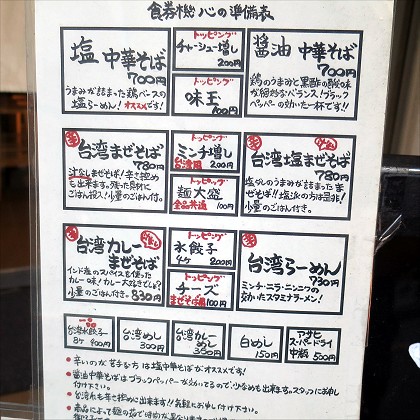 食券機 心の準備表
塩 中華そば
700円
うまみが詰まった鶏ベースの
塩らーめん！オススメです！
トッピング
チャーシュー増し
200円
トッピング
味玉
100円
醤油 中華そば
700円
鶏のうまみと黒酢の酸味
が絶妙なバランス！ブラック
ペッパーの効いた一杯です!!
台湾まぜそば
780円
汁なしのまぜそば！辛さ控め
も出来ます。残った具材に
ごはん投入！小量のごはん付。
トッピング
ミンチ増し
台湾用 200円
トッピング
麺大盛
全品共通 100円
台湾塩まぜそば
780円
塩ダレのうまみが詰まったま
ぜそば!!塩派の方は是非！
小量のごはん付き。
台湾カレー
まぜそば
インド産のスパイスを使った
カレー味！カレー大好きでしょ？
小量のごはん付き。830円
トッピング
水餃子
4ケ 200円
トッピング
チーズ
まぜそば用 100円
台湾らーめん
730円
ミンチ・ニラ・ニンニクの
効いたスタミナラーメン！
台湾水餃子
8ケ 400円
台湾めし
300円
台湾カレーめし
350円
白めし
150円
アサヒ
スーパードライ
中瓶 500円
●辛いのが苦手な方は塩中華そばがオススメです！
●醤油中華そばはブラックペッパーが効いてるので、少なめも出来ます。スタッフにお申し
付け下さい。
●台湾系も辛さ控めに出来ます！気軽にお申し付け下さい。